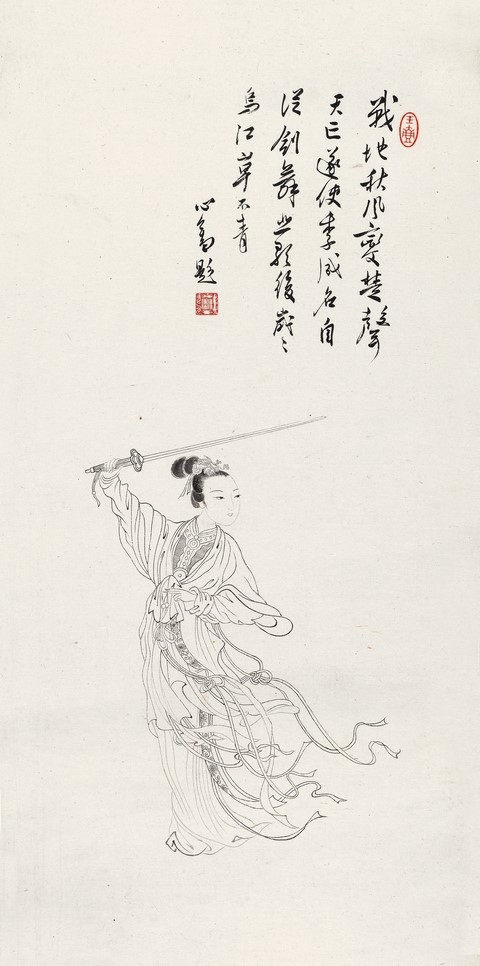 戰地秋風變楚聲
天亡遂使季成名自
從劍舞悲歌後歲々
烏江草不青
心畬題